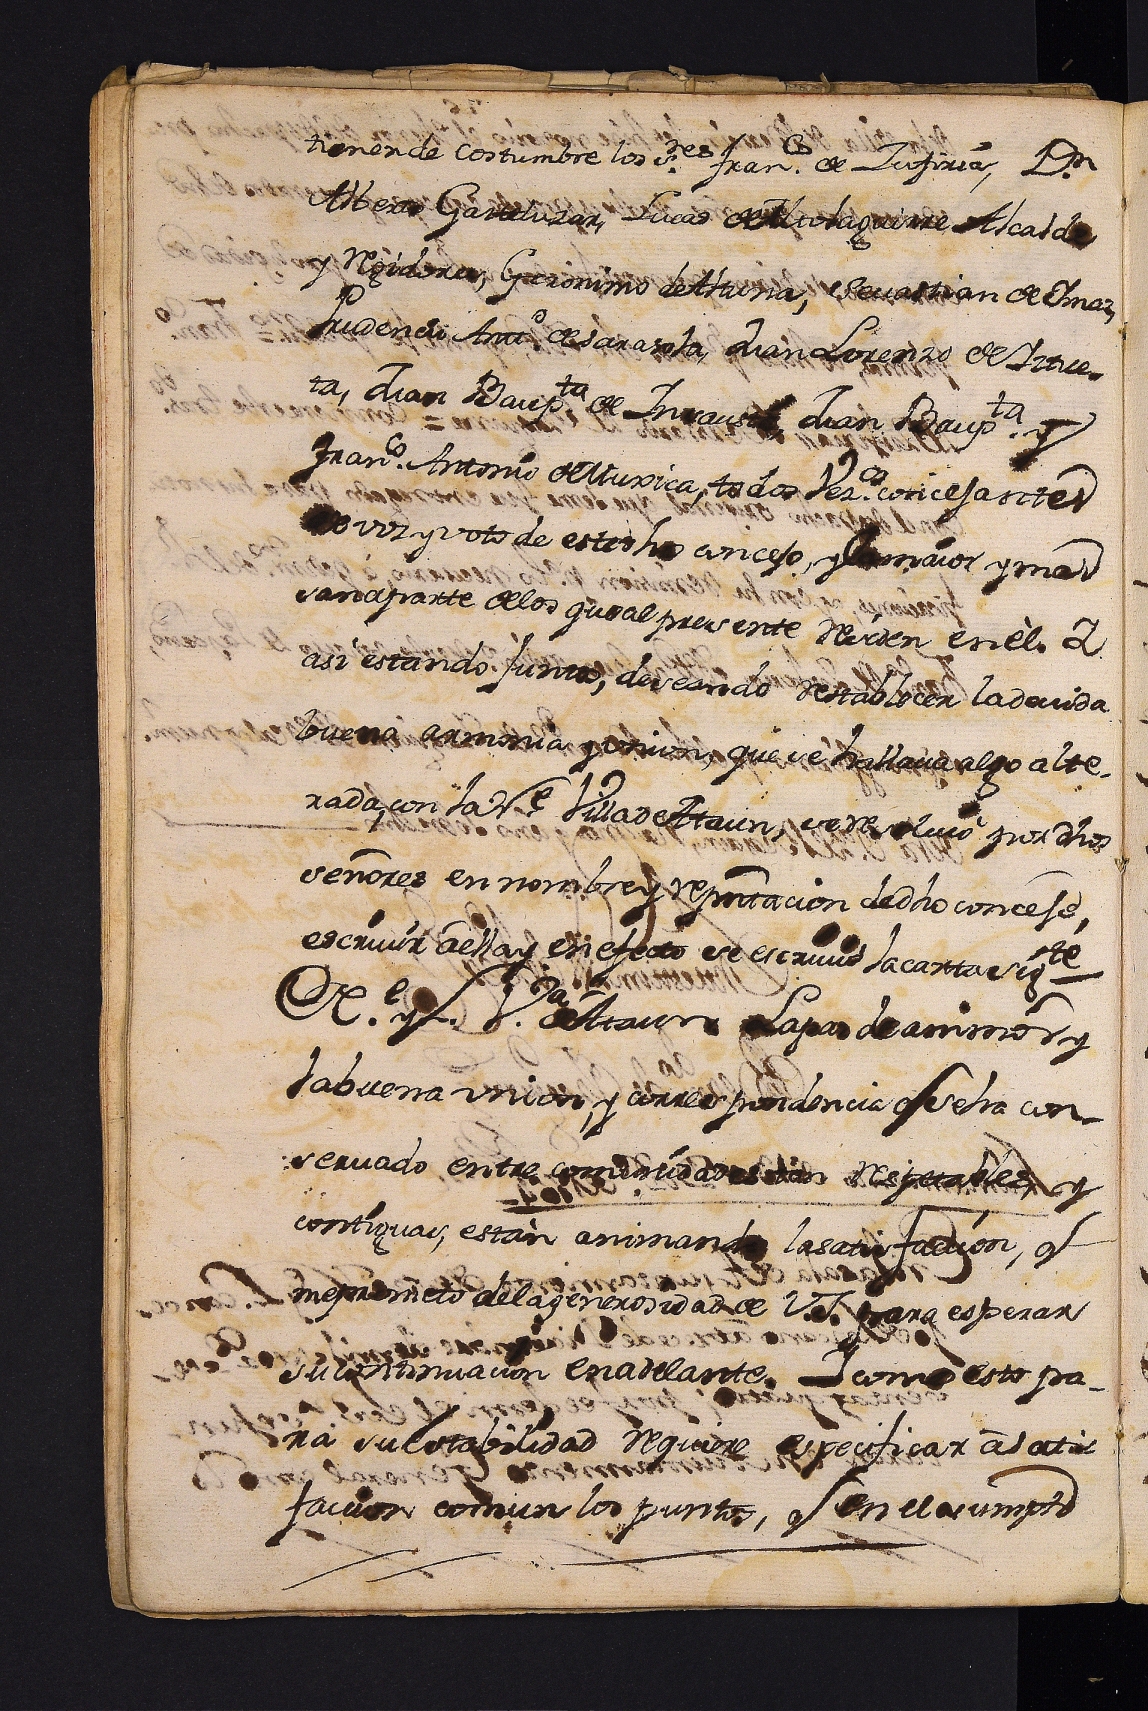 tienen de costumbre los S.res Fran.co de Zufiria, D.n
Alberto Gazteluzar, Lucas de Urtolaguirre Alcalde
y Regidores, Geronimo de Altuna, Sevastian de Elmaz,
Prudencio Ant.o de Sarasola, Juan Lorenzo de Iztue-
ta, Juan Baup.ta de Inchausti, Juan Baup.ta y
Fran.co Antonio de Muxica, todos Vez.os concejantes
de voz y voto de este dho concejo, y la maior y mas
sana parte de los que al presente Residen en èl. I
asi estando juntos, deseando restablecer la devida
buena armonia y union, que se hallava algo alte-
rada, con la N.e Villa de Ataun, se resolvió por dhos
señores en nombre y representacion de dho concejo,
escrivir à ella y en efecto se escrivió la carta sig.te
M. N. y L. V.a de Ataun La paz de animos y
la buena union, y correspondencia q se ha con-
servado entre comunidades tan Respetables, y
contiguas, estàn animando la satisfaccion, q
me prometo de la generosidad de V.S. para esperar
su continuacion en adelante. I como esto pa-
ra su estabilidad Requiere especificar à satis
faccion comun los puntos, q en el asumpto